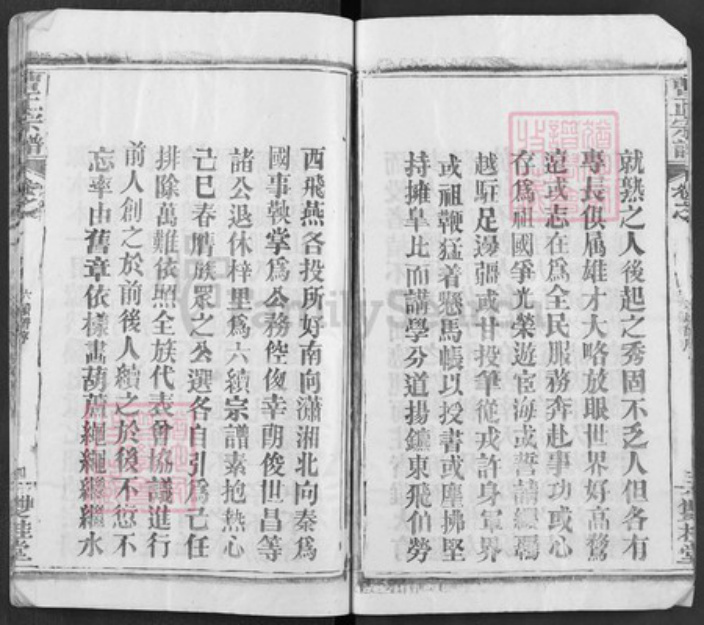 就熟之人後起之秀固不乏人但各有
專長俱屬雄才大略放眼世界好高騖
遠或志在爲全民服務奔赴事功或心
存爲祖國爭光榮遊宦海或誓請纓羈
越駐足邊彊或甘投筆從戎許身軍界
或祖鞭猛着懸馬帳以授書或麈拂堅
持擁臯比而講學分道揚鑣東飛伯勞
西飛燕各投所好南向瀟湘北向秦爲
國事鞅掌爲公務倥傯幸朗俊世昌等
諸公退休梓里爲六續宗譜素抱熱心
己巳春膺族眾之公選各自引爲己任
排除萬難依照全族代表會協議進行
前人創之於前後人續之於後不愆不
忘率由舊章依樣畫葫蘆繩繩繼繼永
曹正宗譜
卷之
雙桂堂
曹正宗譜
卷之
六續譜序
雙桂堂
FamilySearch